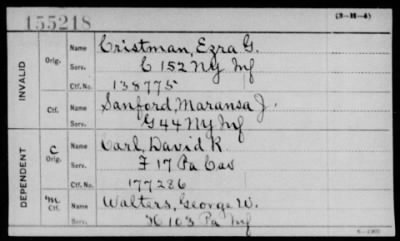 155218
(3-H-4)
INVALID
Orig.
Name
Cristman, Ezra G.
Serv.
C 152 NY Inf
Ctf. No.
138775
Ctf.
Name
Sanford, Maransa J.
Serv.
G 44 NY Inf
DEPENDENT
C
Orig.
Name
Carl, David K
Serv.
F 17 Pa Cav
Ctf. No.
177286
M
Ctf.
Name
Walters, George W.
Serv.
H 103 Pa Inf